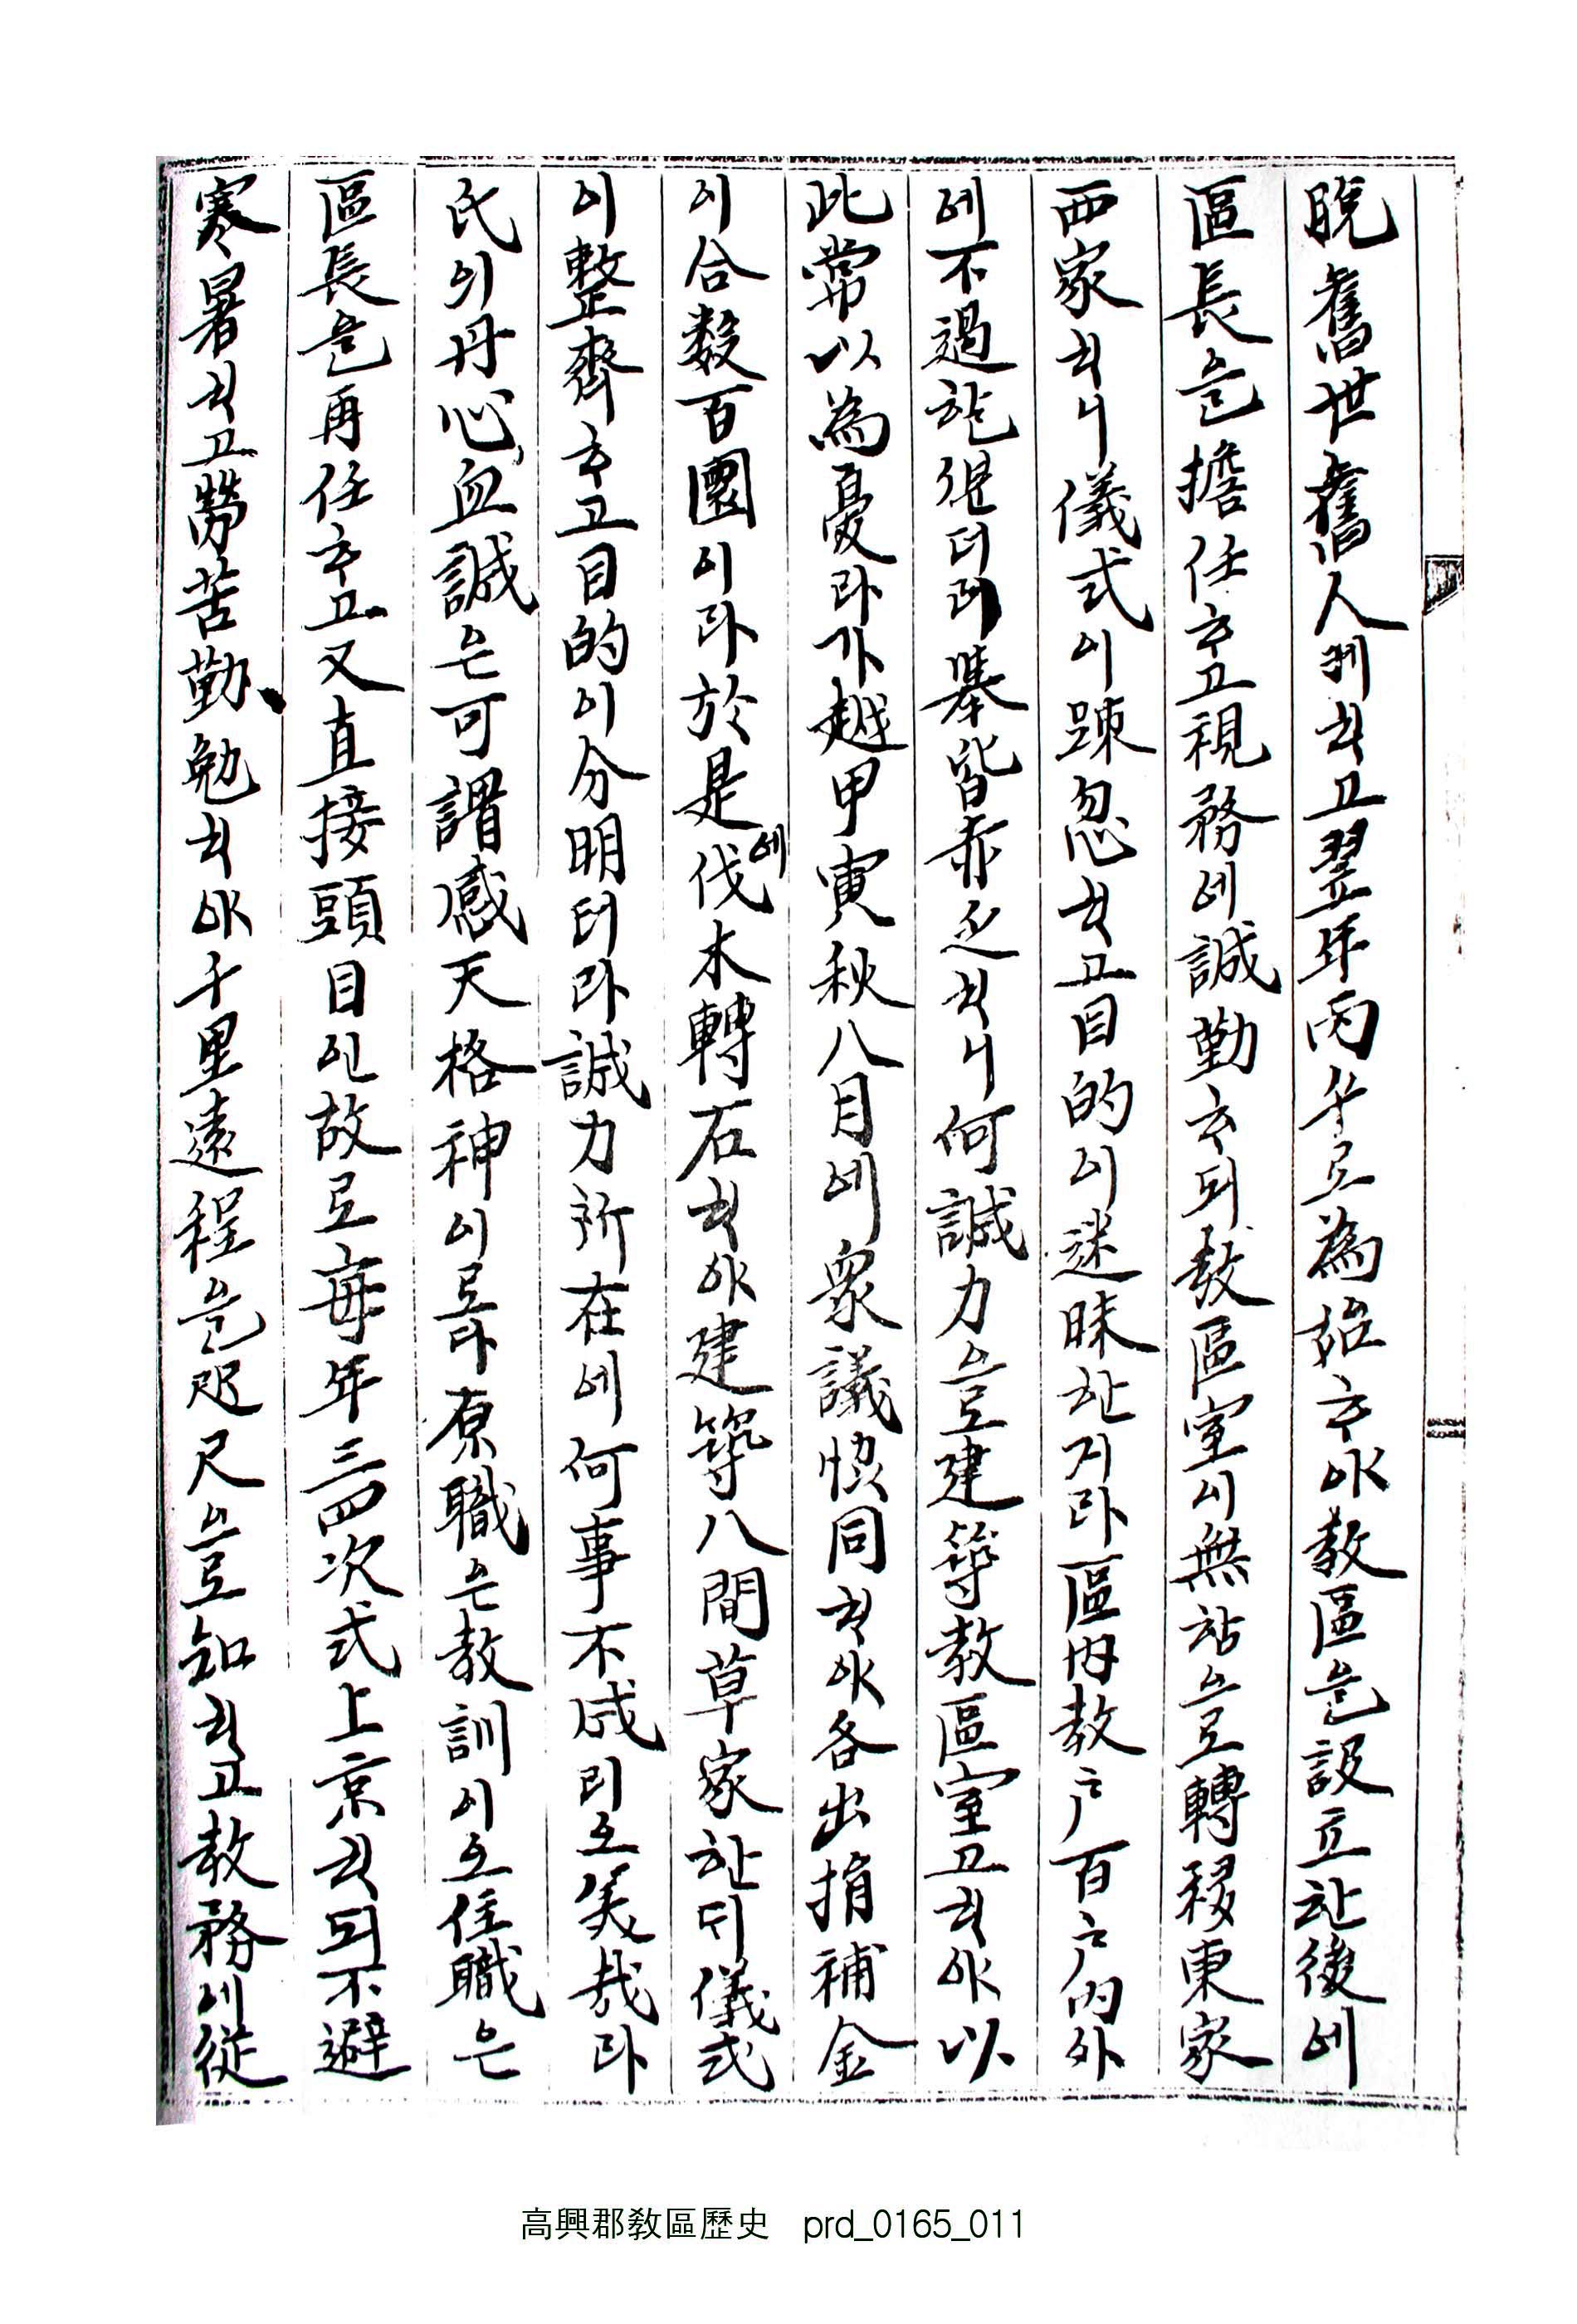 脫舊世舊人케ᄒᆞ고翌年丙午로為始ᄒᆞ야敎區를設立한後에
區長을擔任ᄒᆞ고視務에誠勤ᄒᆞ되敎區室이無하므로轉移東家
西家ᄒᆞ니儀式이踈忽ᄒᆞ고目的이迷昧한지라區內敎户百户內外
에不過
擧皆赤乏ᄒᆞ니何誠力으로建築敎區室고ᄒᆞ야以
此常以為憂라가越甲寅秋八月에衆議恊同ᄒᆞ야各出捐補金
이合数百圜이라於是에伐木轉石ᄒᆞ야建築八間草家한ᄃᆡ儀式
이整齊ᄒᆞ고目的이分明터라誠力所在에何事不成리오美哉라
氏의丹心血誠은可謂感天格神이로다原職은敎訓이오住職은
區長을再任ᄒᆞ고又直接頭目인故로每年三四次式上京ᄒᆞ되不避
寒暑ᄒᆞ고勞苦勤勉ᄒᆞ야千里遠程을咫尺으로知ᄒᆞ고敎務에從
高興郡敎區歷史 prd_0165_011